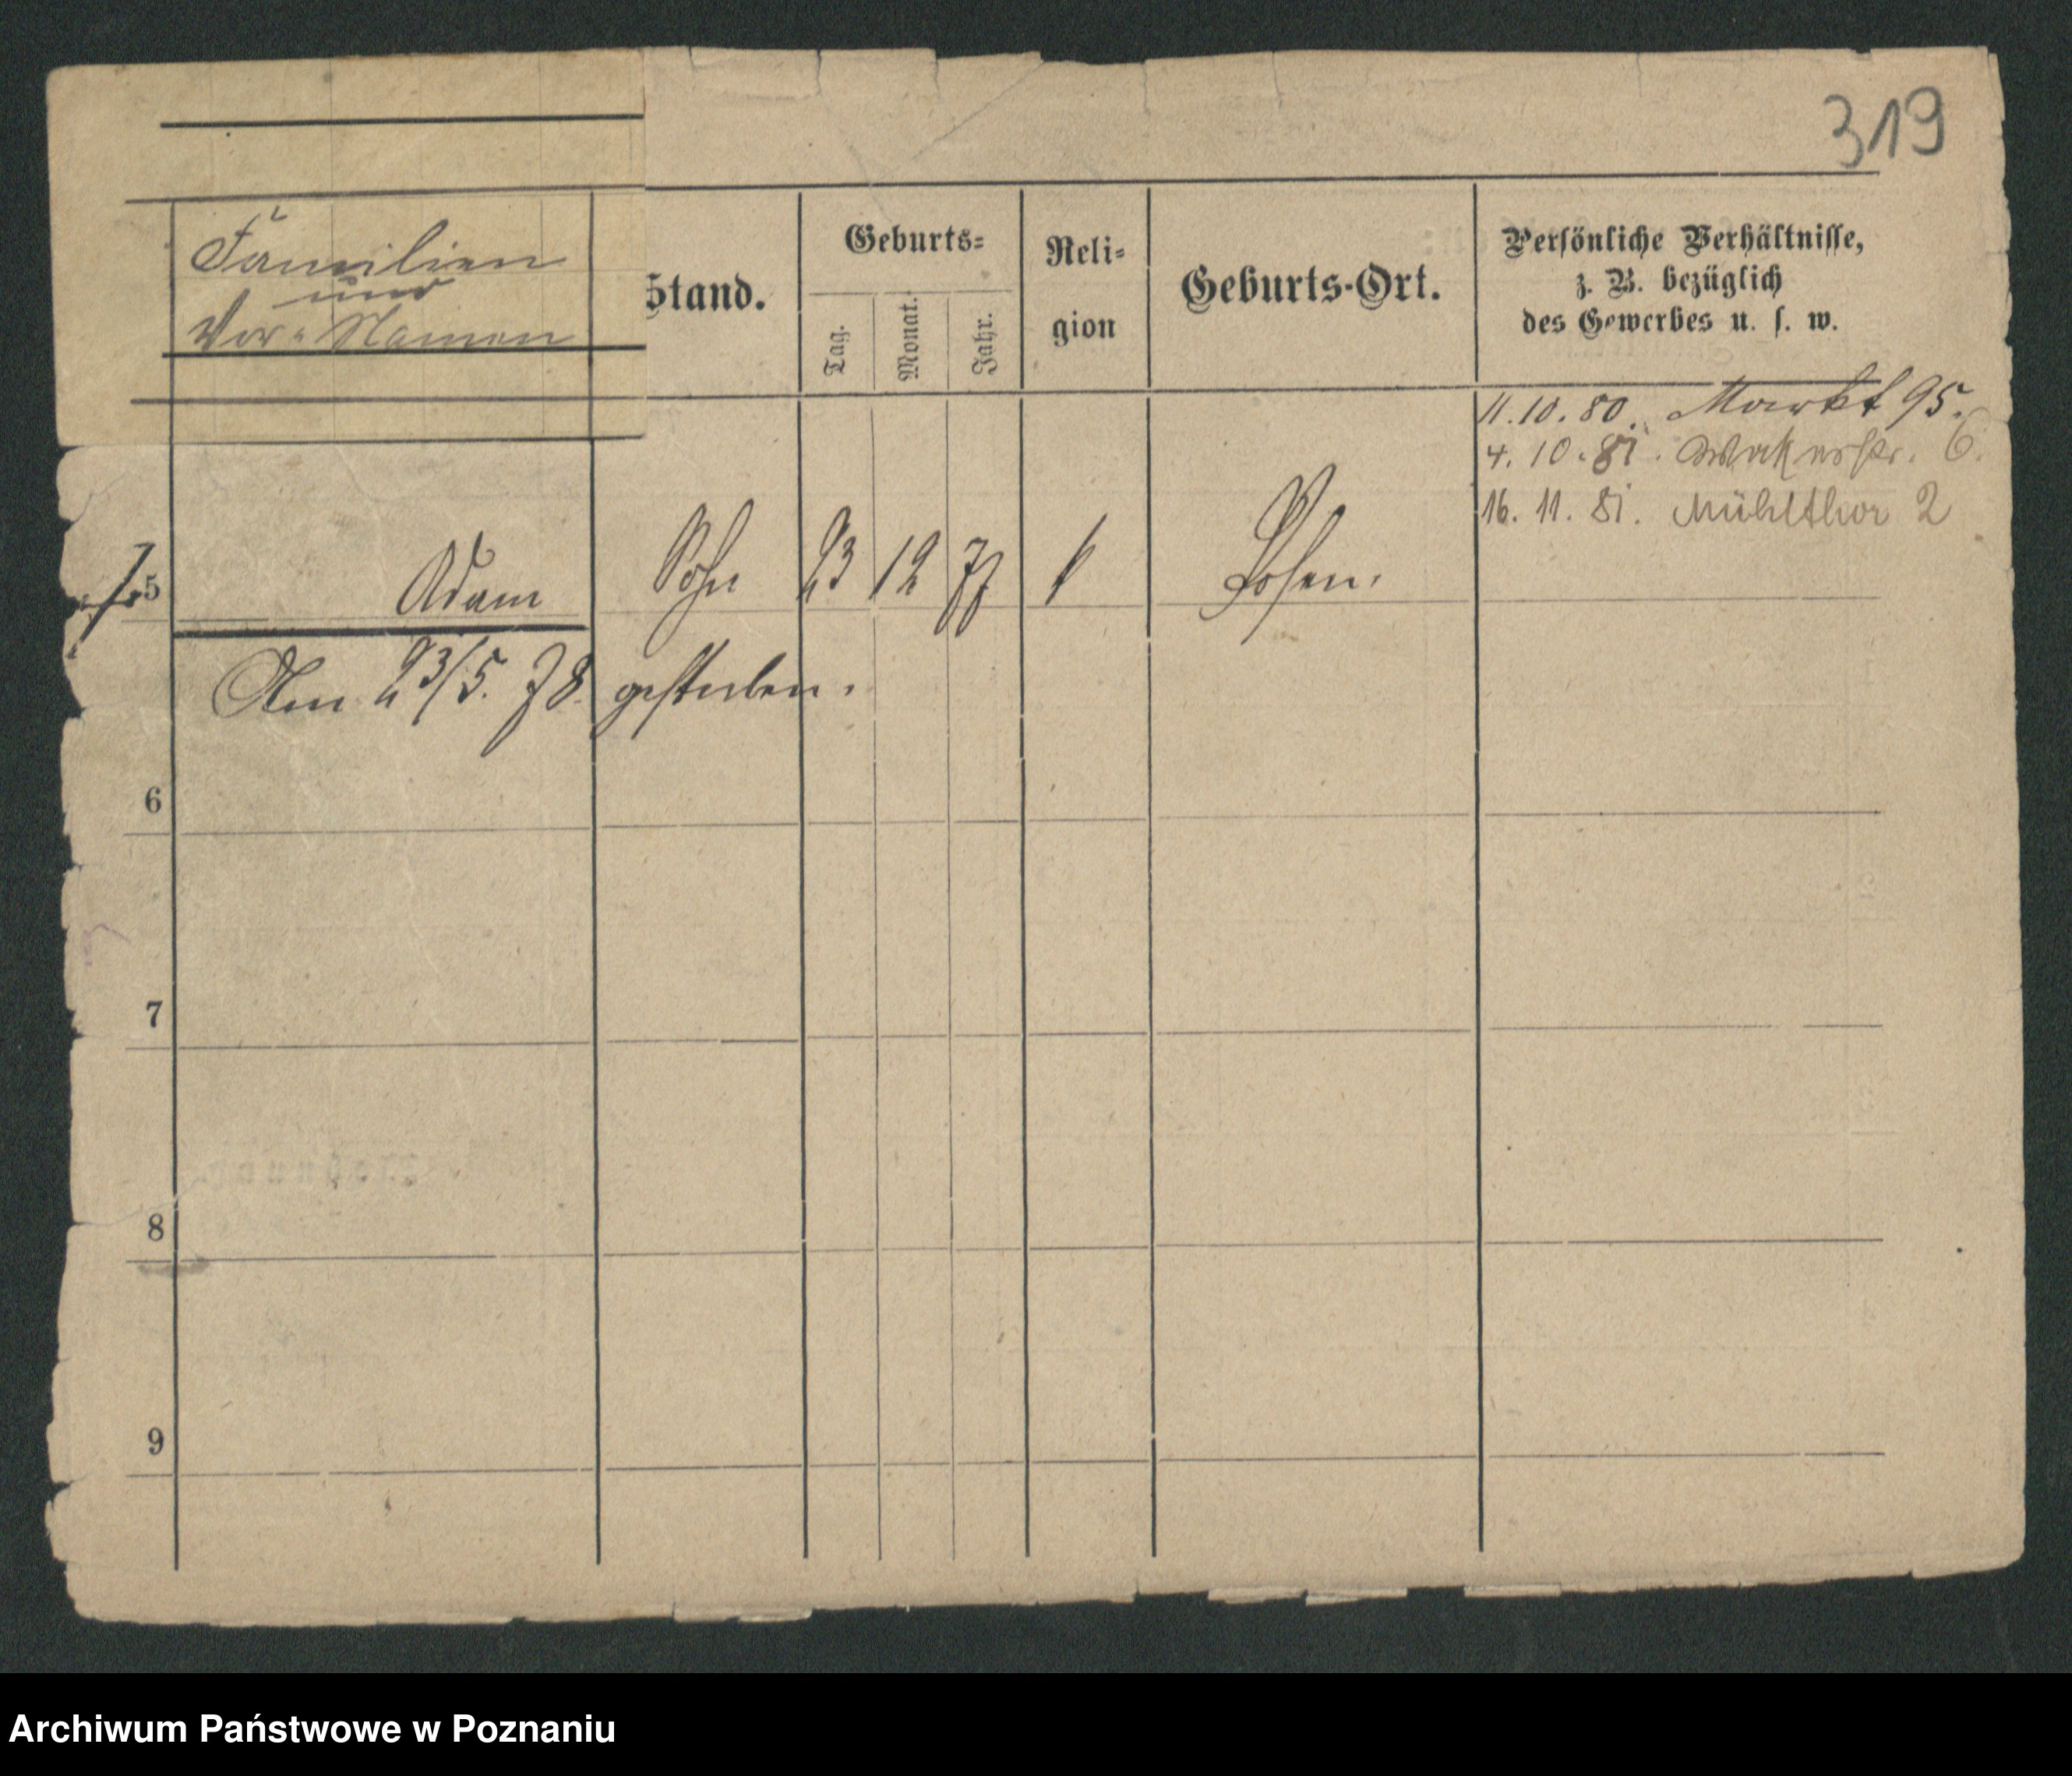 319
Familien
und
Vor-Namen
Stand.
Geburts-
Tag.
Monat.
Jahr.
Reli-
gion
Geburts-Ort.
Persönliche Verhältnisse,
z. B. bezüglich
des Gewerbes u. s. w.
11.10.80. Markt 95.
4.10.81. 6.
16.11.81. Mühlthor 2
5 Adam Sohn 23 12 77 k Posen.
Am 23/5. 78 gestorben.
6
7
8
9
Archiwum Państwowe w Poznaniu